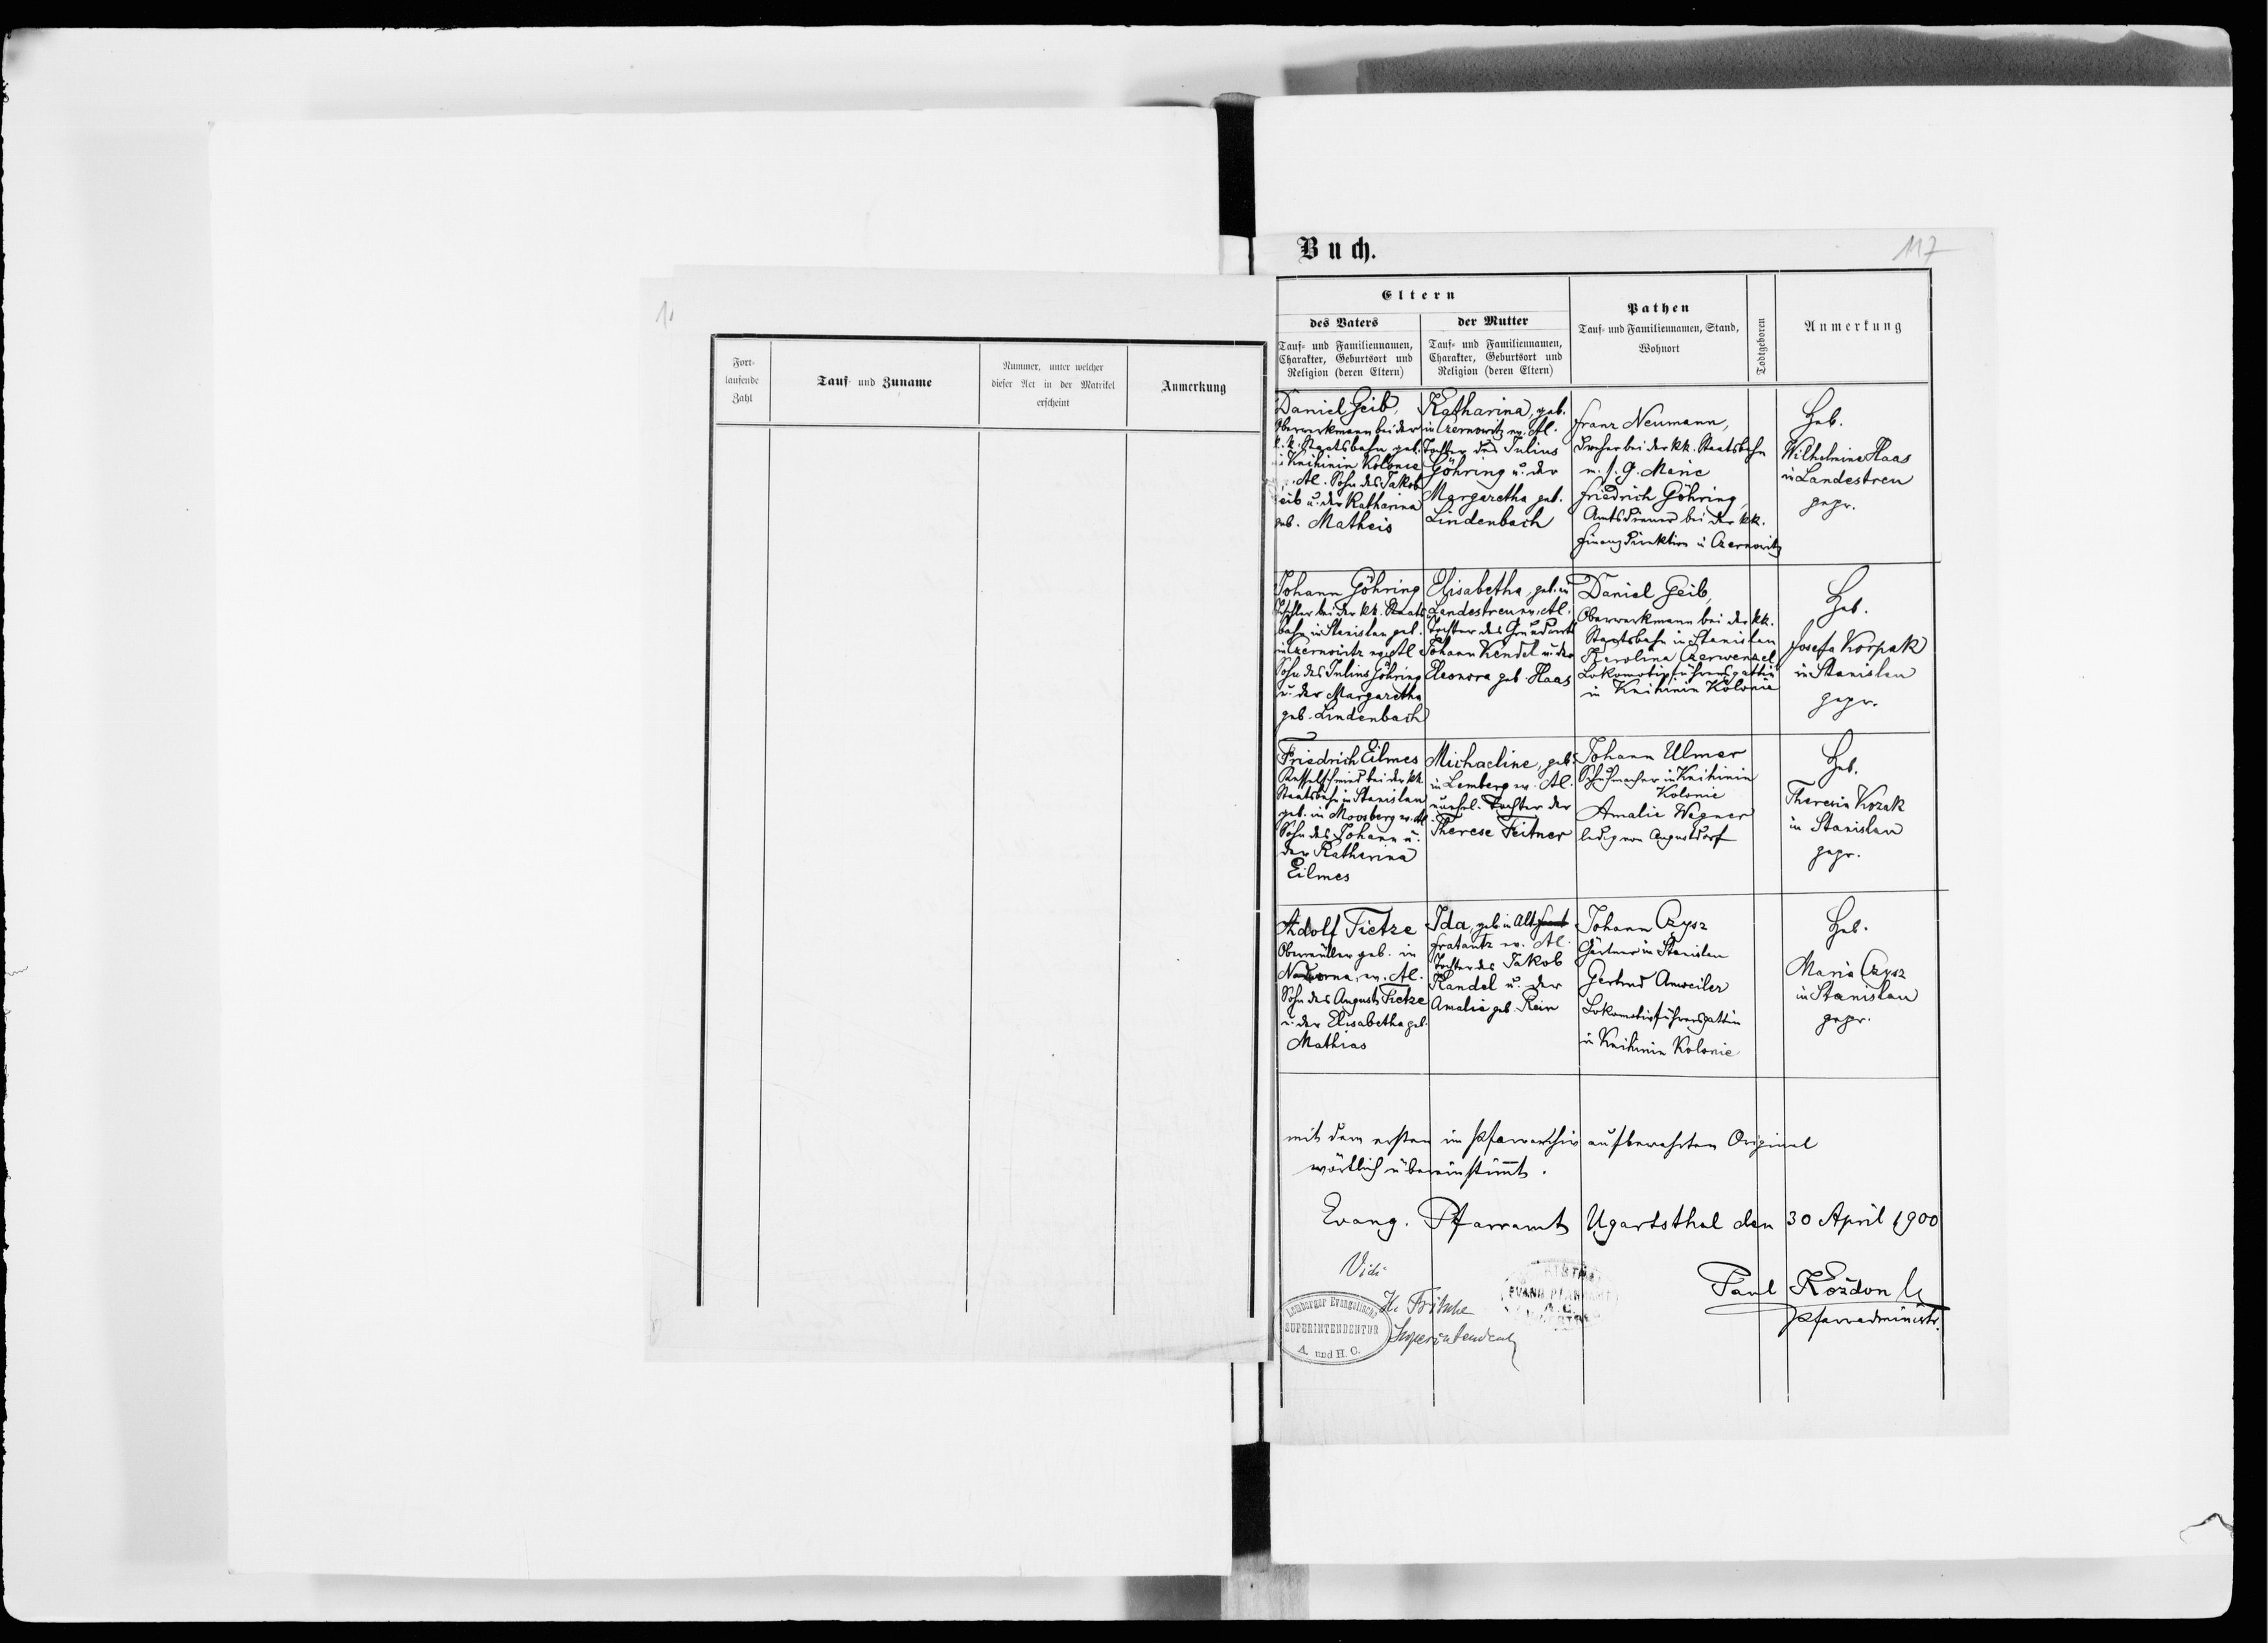 Fort-
laufende
Zahl
Tauf- und Zuname
Nummer, unter welcher
dieser Act in der Matrikel
erscheint
Anmerkung
Buch.
117
Eltern
des Vaters
Tauf- und Familiennamen,
Charakter, Geburtsort und
Religion (deren Eltern)
der Mutter
Tauf- und Familiennamen,
Charakter, Geburtsort und
Religion (deren Eltern)
Pathen
Tauf- und Familiennamen, Stand,
Wohnort
Todtgeboren
Anmerkung
Daniel Geib,
Oberwerkmann bei der
k.k. Staatsbahn geb.
in Knihinin Kolonie
A.C. Sohn des Jakob
Geib u. der Katharina
geb. Matheis
Katharina, geb.
in Czernowitz ev. A.C.
Tochter des Julius
Göhring u. der
Margaretha geb.
Lindenbach
Franz Neumann,
Dreher bei der kk. Staatsbahn
m. s. G. Marie
Friedrich Göhring,
Amtsdiener bei der kk.
Finanzdirektion in Czernowitz
Heb.
Wilhelmine Haas
in Landestreu
gepr.
Johann Göhring
Tischler bei der kk. Staats
bahn in Stanislau geb.
in Czernowitz ev. A.C.
Sohn des Julius Göhring
u. der Margaretha
geb. Lindenbach
Elisabetha, geb. in
Landestreu ev. A.C.
Tochter des Grundwirts
Johann Kendel u. der
Eleonora geb. Haas
Daniel Geib,
Oberwerkmann bei der kk.
Staatsbahn in Stanislau
Karolina Czerwenzel
Lokomotivführersgattin
in Knihinin Kolonie
Heb.
Josefa Korpak
in Stanislau
gepr.
Friedrich Eilmes
Kesselschmied bei der kk.
Staatsbahn in Stanislau
geb. in Moosberg ev. A.C.
Sohn des Johann u.
der Katharina
Eilmes
Michaeline, geb.
in Lemberg ev. A.C.
unehel. Tochter der
Therese Feitner
Johann Ulmer
Schuhmacher in Knihinin
Kolonie
Amalie Wagner
ledig von Augustdorf
Heb.
Theresia Kozak
in Stanislau
gepr.
Adolf Tietze
Obermüller geb. in
Nadworna, ev. A.C.
Sohn des August Tietze
u. der Elisabetha geb.
Mathias
Ida, geb. in Alt
Fratautz ev. A.C.
Tochter des Jakob
Kandel u. der
Amalie geb. Rein
Johann Czysz
Gärtner in Stanislau
Gertrud Anweiler
Lokomotivführersgattin
in Knihinin Kolonie
Heb.
Maria Czysz
in Stanislau
gepr.
mit dem ersten im Pfarrarchiv aufbewahrten Original
wörtlich übereinstimmt.
Evang. Pfarramt Ugartsthal den 30 April 1900
Vidi
Fritsche
Superintendent
Lemberger Evangelische
SUPERINTENDENTUR
A. und H. C.
A.C.
Paul Kozdon
Pfarradministr.